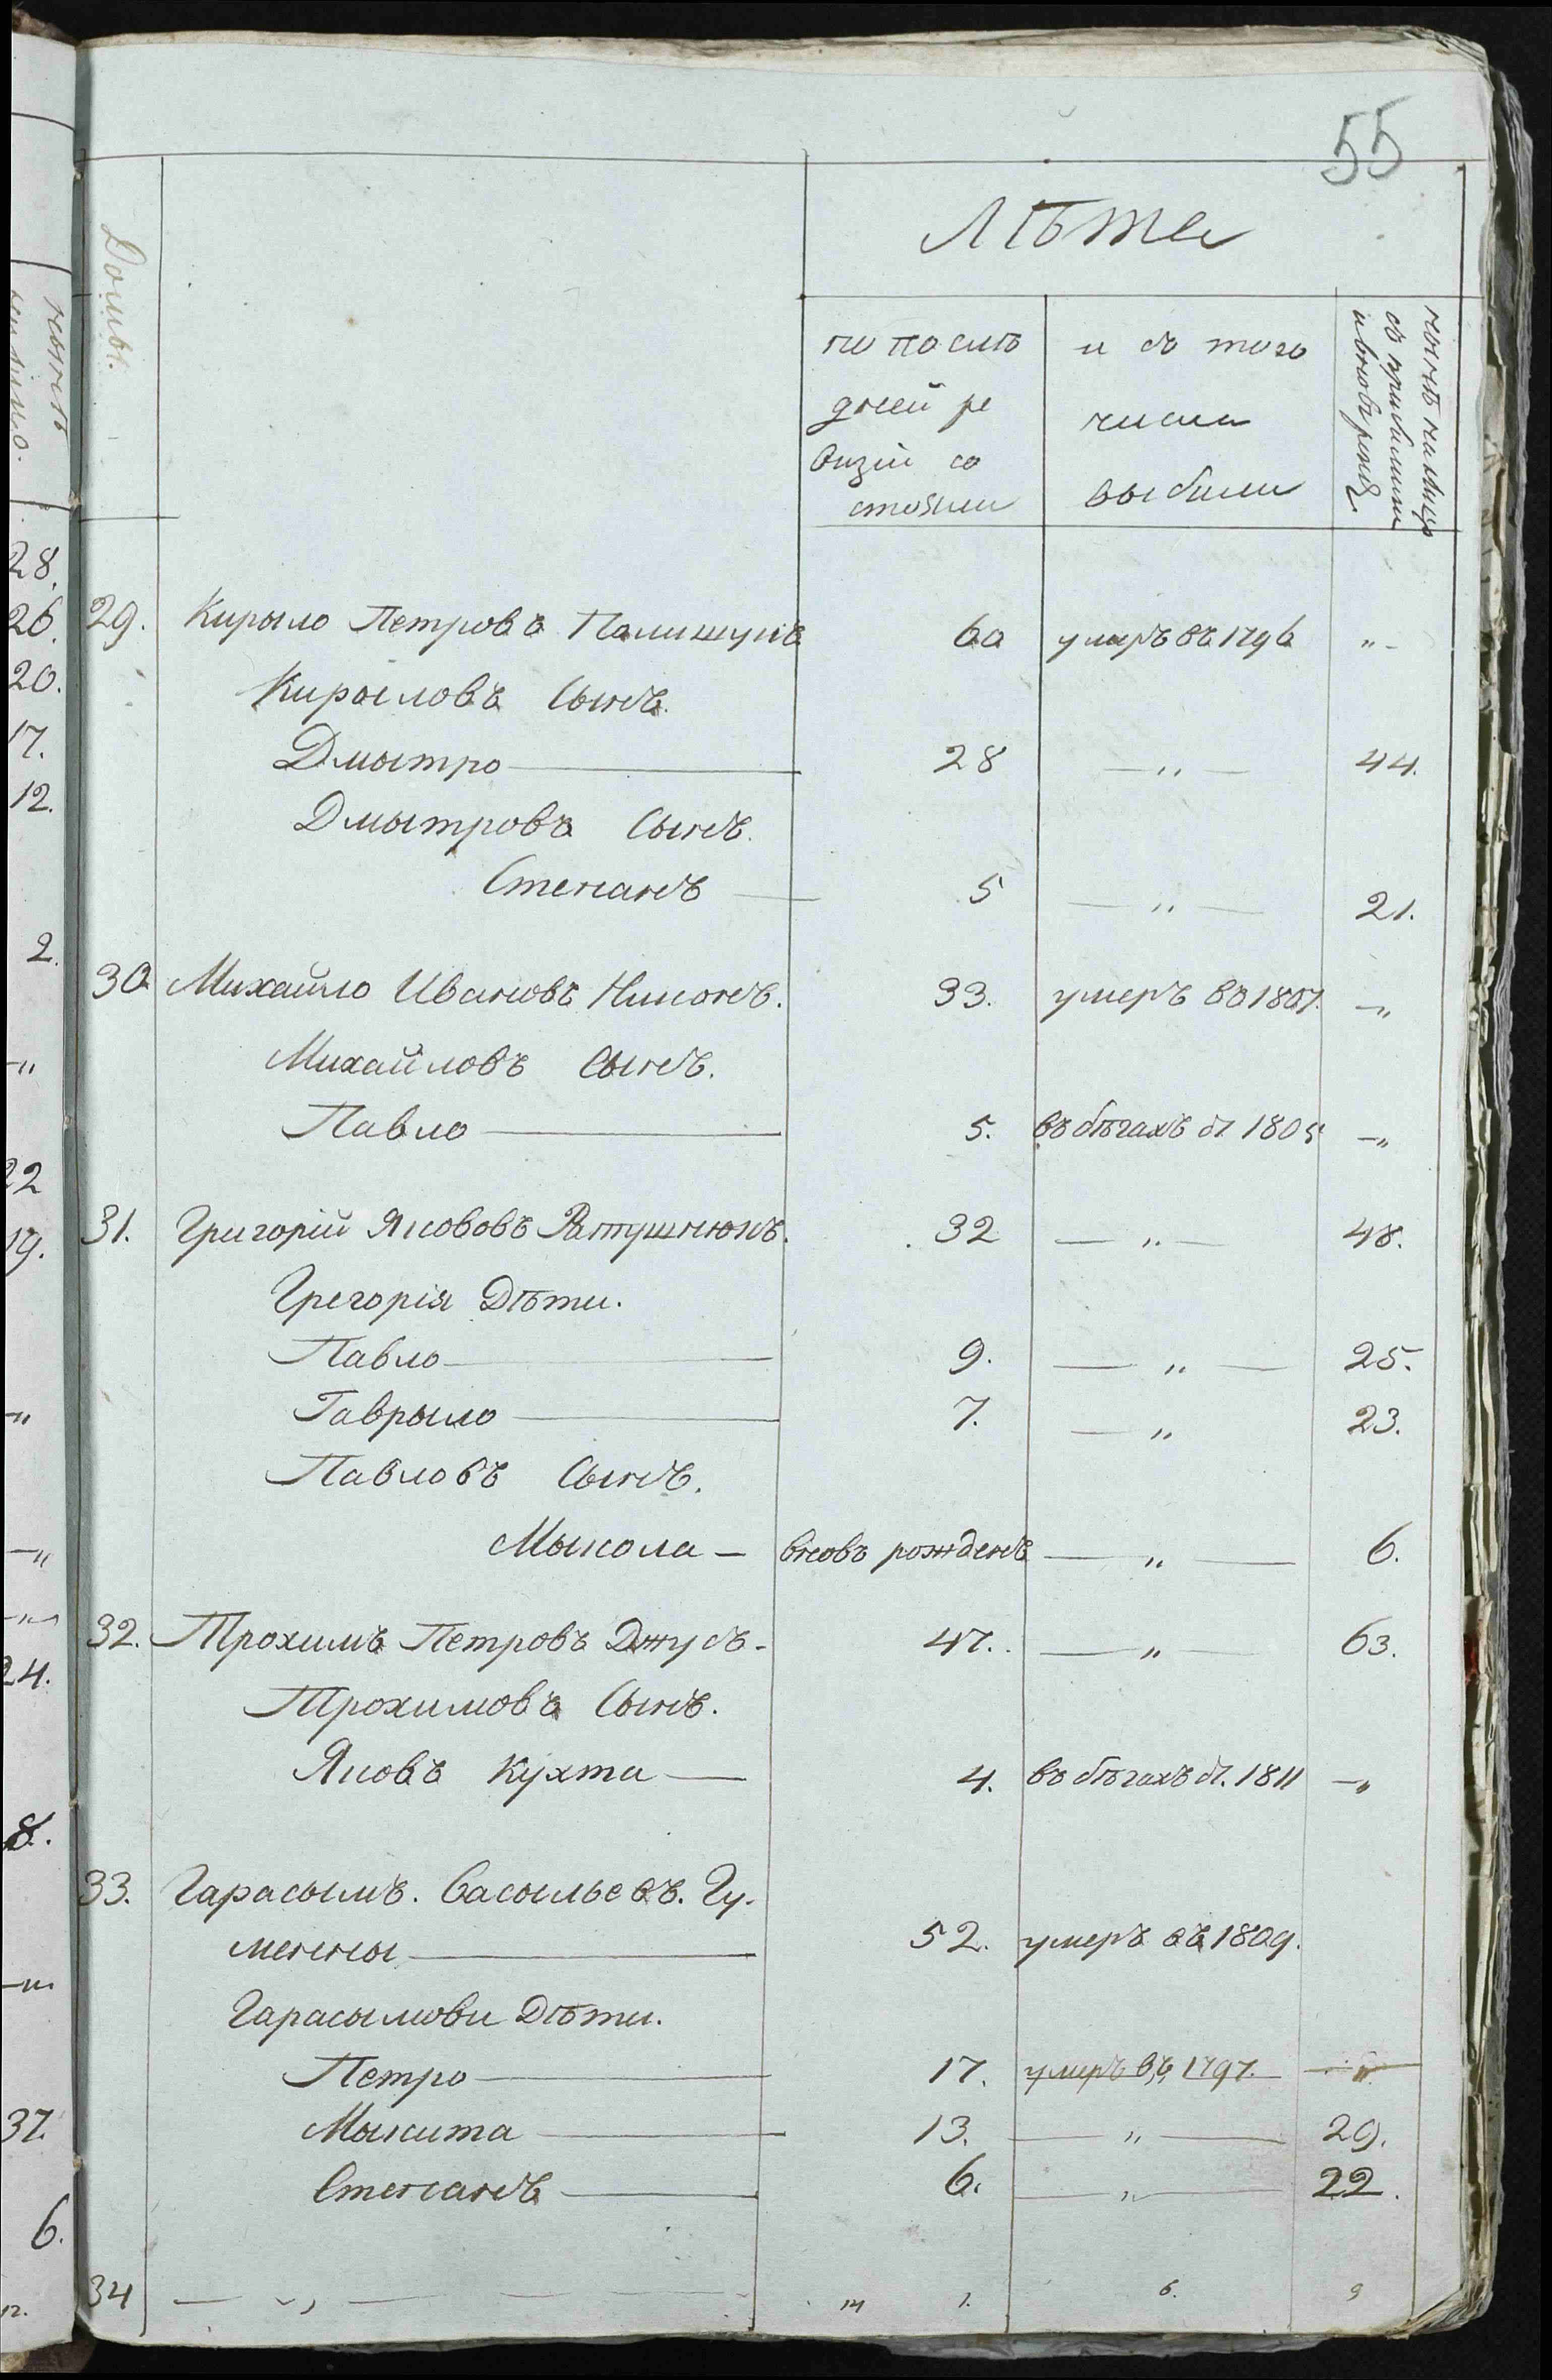 55
Лѣта
Домы.
по послѣ
дней ре
визіи со
стояли
и съ того
числа
выбыли
нынѣ налицо
съ прибылыми
и вновь рожд.
29. Кирыло Петровъ Палишукъ 60 умеръ въ 1796 „-
Кирыловъ Сынъ.
Дмытро 28 — „ — 44.
Дмытровъ Сынъ.
Степанъ 5 — „ — 21.
30 Михайло Ивановъ 33. умеръ въ 1807. —„
Михайловъ Сынъ.
Павло 5. въ бѣгахъ съ 1805 —„
31. Григорій Якововъ Ратушнюкъ. 32 — „ — 48.
Грегорія Дѣти.
Павло 9. — „ — 25.
Гаврыло 7. — „ 23.
Павловъ Сынъ.
Мыкола — вновь рожденъ — „ — 6.
32. Трохимъ Петровъ Джусъ- 47. — „ — 63.
Трохимовъ Сынъ.
Яковъ Кухта — 4. въ бѣгахъ съ. 1811 —„
33. Гарасымъ. Васыльевъ. Гу-
менны 52. умеръ въ 1809.
Гарасымови Дѣти.
Петро 17. умеръ въ 1797. — „
Мыкита 13. — „ — 29.
Степанъ 6. — „ — 22.
34 — „ — 14 1. 6. 9
28.
26.
20.
17.
12.
2.
—„
22
19.
—„
—„
—„
24.
8.
—„
37.
6.
12.